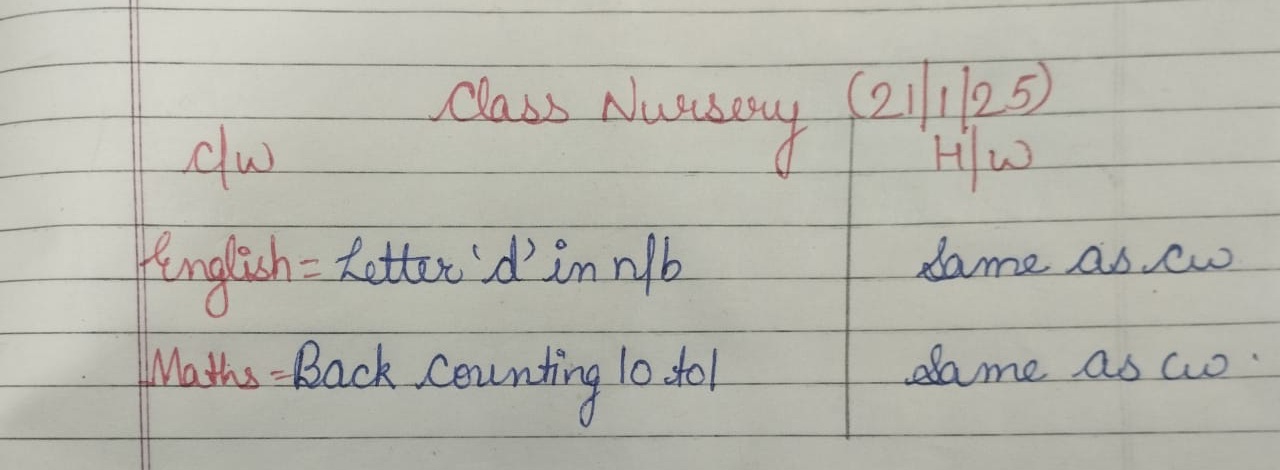 Class Nursery (21/1/25)
C/W H/W
English = Letter 'd' in n/b Same as cw
Maths = Back counting 10 to 1 Same as cw.